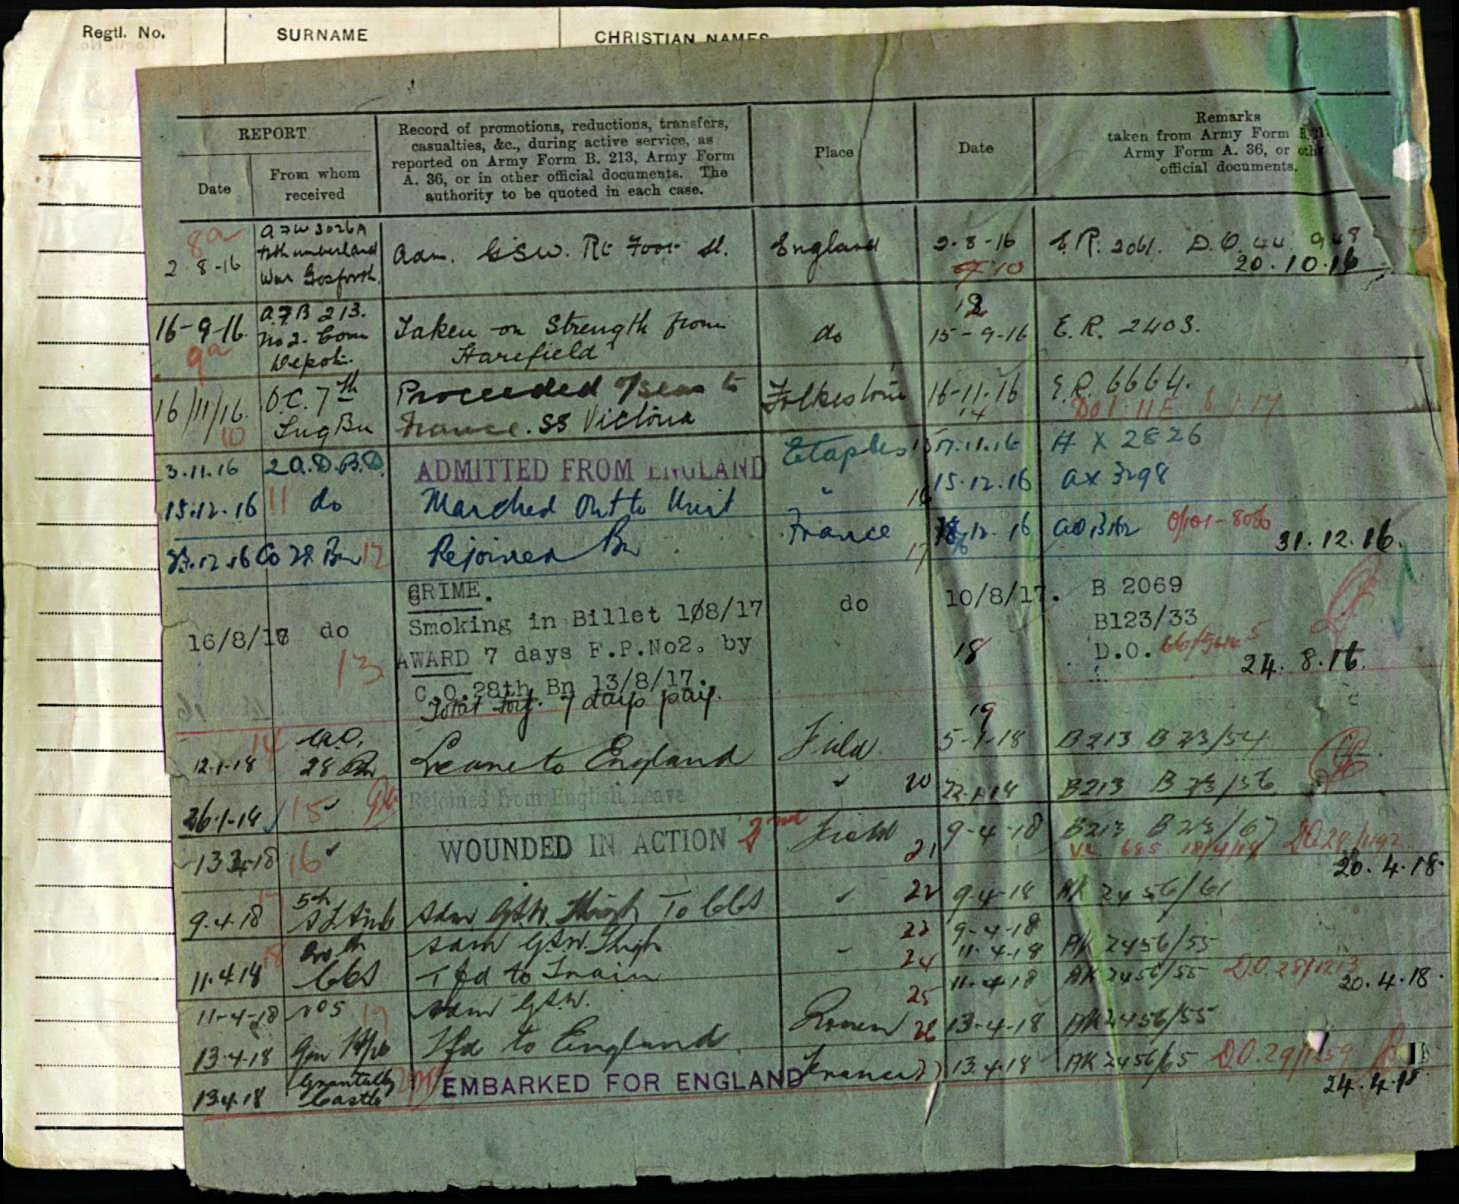 Regtl. No. SURNAME CHRISTIAN NAMES
REPORT
Date
From whom
received
Record of promotions, reductions, transfers,
casualties, &c., during active service, as
reported on Army Form B. 213, Army Form
A. 36, or in other official documents. The
authority to be quoted in each case.
Place
Date
Remarks
taken from Army Form B.
Army Form A. 36, or
official documents.
8a
2-8-16
A.F.W 3026A
War Gosforth
Adm. G.S.W. Rt Foot Sl. England 2-8-16 E.R. 2061. D.O. 44
10
20.10.16
16-9-16
9a
A.F.B 213.
No 2. Com
Depot.
Taken on Strength from
Harefield
do
12
15-9-16
E.R. 2403.
16/11/16
10
O.C. 7th
Trg Bn
Proceeded o/seas to
France. SS Victoria
Folkestone
16-11-16
14
E.R. 6664.
3.11.16 2 A.D.B.D. ADMITTED FROM ENGLAND Etaples 15 17.11.16 A X 2826
15.12.16 11 do Marched Out to Unit " 16 15.12.16 AX 3298
Co 28 Bn 12 Rejoined Bn France 17 12.16
31.12.16.
16/8/17 do
13
CRIME.
Smoking in Billet 10/8/17
AWARD 7 days F.P.No2. by
C.O.28th Bn 13/8/17.
Total forf. 7 days pay.
do
10/8/17.
18
B 2069
B123/33
D.O.
24. 8.16.
14
12-1-18
28 Bn
Leave to England Field
19
5-1-18 B213 B 73/54
26-1-18 15 Rejoined from English Leave " 20 22-1-18 B213 B 73/56
16 WOUNDED IN ACTION 2nd Field 21 9-4-18 B213
20.4.18.
9.4.18
5th
Adm GSW Thigh To CCS 22 9-4-18 AK 2456/61
18
11.4.18
CCS
Adm GSW Thigh
Tfd to Train
23 9-4-18
24 11-4-18 AK 2456/55
20.4.18.
11-4-18 No 5 19 Adm GSW. 25 11-4-18 AK 2456/55
13.4.18 Gen Hosp Tfd to England Rouen 26 13-4-18 AK 2456/55
13.4.18
Grantully
Castle
EMBARKED FOR ENGLAND France 27 13.4.18 AK 2456/65
24.4.18.